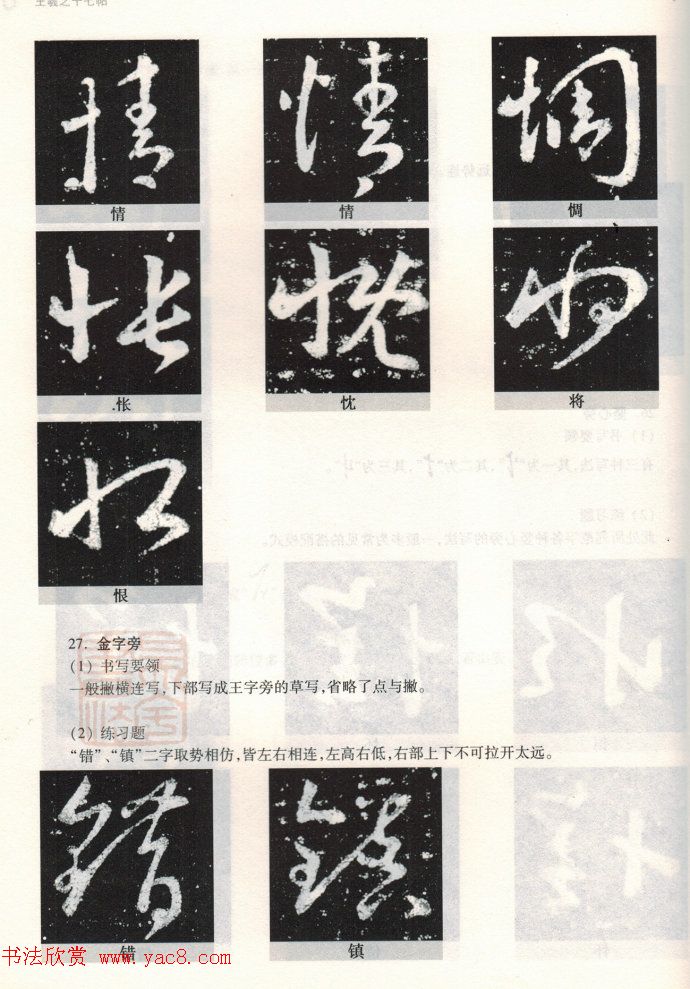 王羲之十七帖
情 情 惆
怅 忱 将
恨
27. 金字旁
(1) 书写要领
一般撇横连写,下部写成王字旁的草写,省略了点与撇。
(2) 练习题
“错”、“镇”二字取势相仿,皆左右相连,左高右低,右部上下不可拉开太远。
错 镇
书法欣赏 www.yac8.com